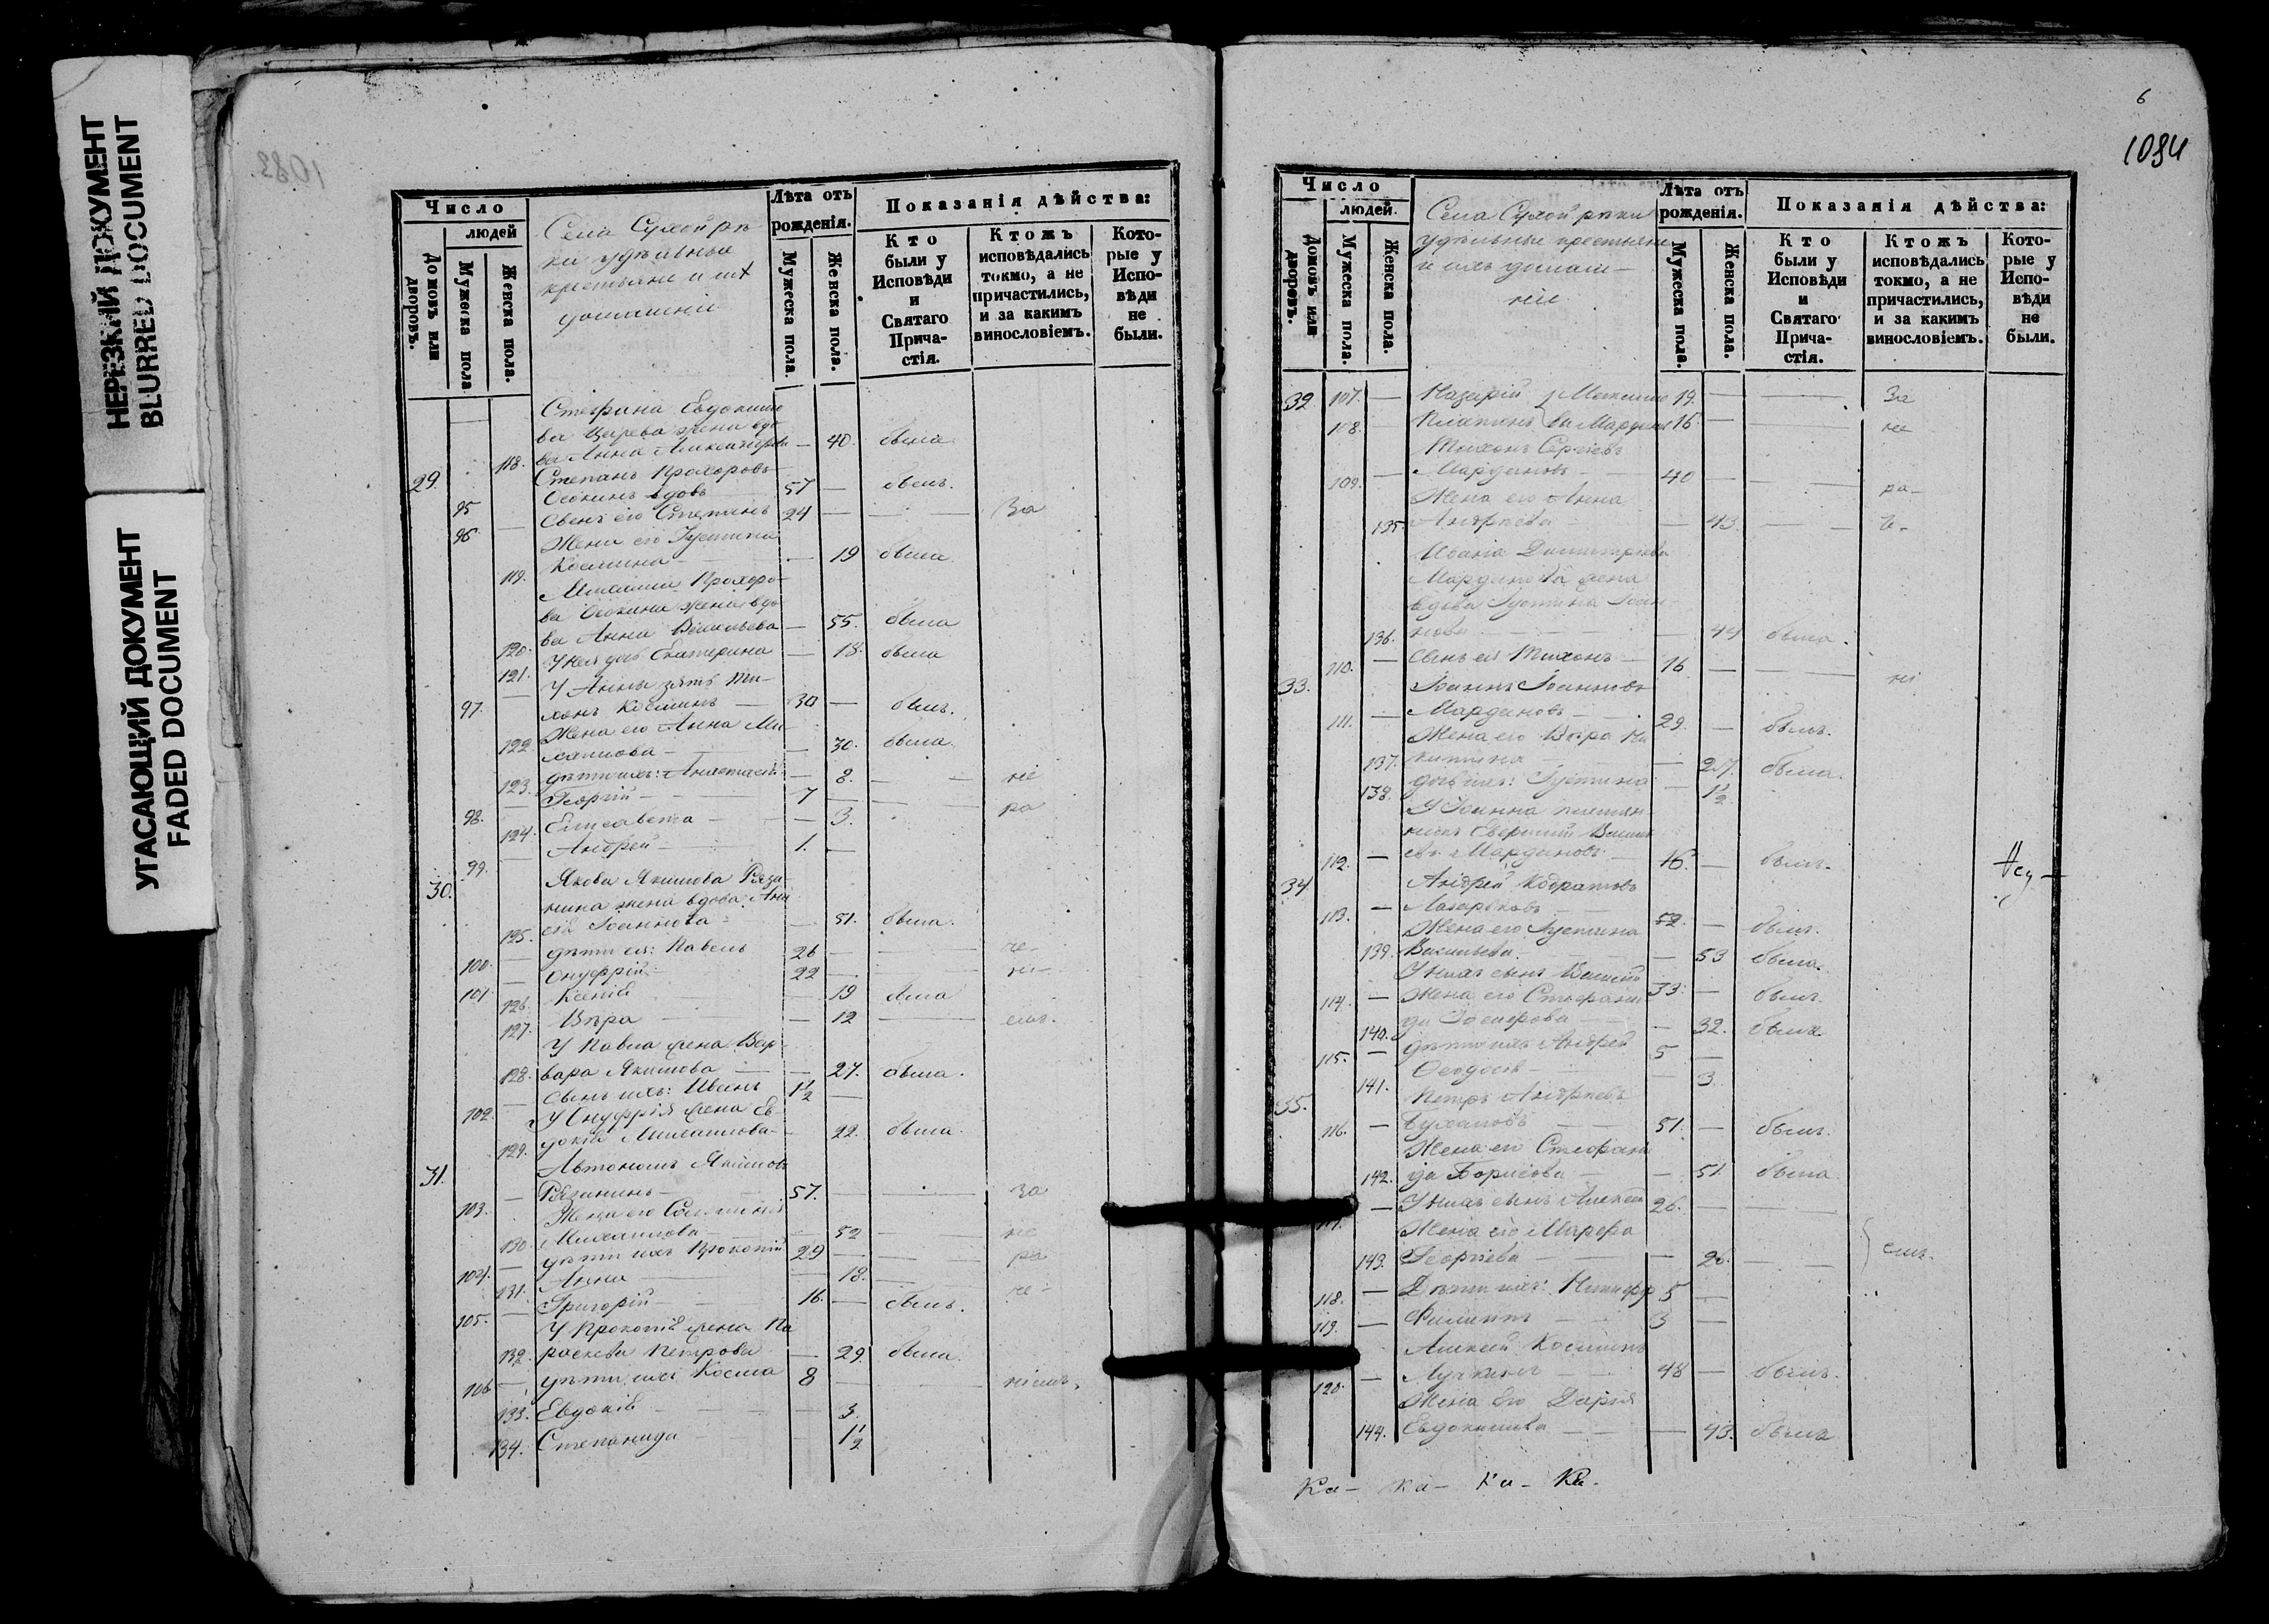 НЕРЕЗКИЙ ДОКУМЕНТ
BLURRED DOCUMENT
УГАСАЮЩИЙ ДОКУМЕНТ
FADED DOCUMENT
1083
Число
людей
Домовъ или дворовъ.
Мужеска пола
Женска пола.
Села Сухой рѣ-
ки удѣльные
крестьяне и ихъ
домашніе
Лѣта отъ рожденія.
Мужеска пола.
Женска пола.
Показанія дѣйства:
Кто были у Исповѣди и Святаго Прича-стія.
Ктожъ исповѣдались токмо, а не причастились, и за какимъ винословіемъ.
Кото-рые у Испо-вѣди не были.
Евдокимо
ва Царева жена вдо
118. ва Анна Александрова — 40. была
29. Степанъ Прохоровъ
95 Осокинъ вдовъ 57 — былъ.
96 — Сынъ его Степанъ 24 — — За
Жена его Іустина
119. Космина — — 19 была
Михаила Прохоро-
ва Осокина жена вдо
120. ва Анна Васильева — 55. была
121. У нея дочь Екатерина — 18. была
У Анны зять Ти-
97. — хонъ Косминъ — 30 — былъ.
Жена его Анна Ми-
122 хаилова — — 30. была.
123. дѣти ихъ: Анастасія — 8. — — не
98. — Георгій — 7 — — ра
124. Елисавета — — 3.
99. — Андрей — 1. —
30. Якова Якимова Ряза-
нина жена вдова
125. Іоаннова — 51. была.
100. — дѣти ея: Павелъ 26 — — че-
101 — Онуфрій 22 — —
126. Ксенія — 19 была
127. Вѣра — 12 — емъ.
У Павла жена Вар-
128. вара Якимова — — 27. была.
102. — Сынъ ихъ: Иванъ 1 1/2 —
У Онуфрія жена Ев-
129. докія Михаилова — 22. была.
31. Автономъ Якимовъ
103. — Рязанинъ — 57. — — за
Жена его
130. Михаилова — — 52 — не
104. — дѣти ихъ Прокопій 29 — — ра
131. Анна — — 18. — че-
105. — Григорій — 16. — былъ.
У Прокопія жена Па
132. раскева Петрова — 29. была.
106 — дѣти ихъ Косма 8 — —
133. Евдокія — — 3.
134. Степанида — 1 1/2
6
1084
Число
людей.
Домовъ или дворовъ.
Мужеска пола.
Женска пола.
Села Сухой рѣки
удѣльные крестьяне
и ихъ домаш-
ніе
Лѣта отъ рожденія.
Мужеска пола.
Женска пола.
Показанія дѣйства:
Кто были у Исповѣди и Святаго Прича-стія.
Ктожъ исповѣдались токмо, а не причастились, и за какимъ винословіемъ.
Кото-рые у Испо-вѣди не были.
32 107. — Назарій 19. — — За
108. 16. — — не
Тихонъ Сергіевъ
109. — Мардановъ — 40 — — ра-
Жена его Анна
135. Андреева — — 43. —
Димитріева
Марданова жена
вдова Іустина Іоан-
136. нова — — 44 была.
110. — Сынъ ея Тихонъ — 16 — —
33. Іоаннъ Іоанновъ
111. — Мардановъ — 29 — былъ.
Жена его Вѣра Ни
137. китина — 27. была.
138. дочь ихъ: Іустина — 1 1/2
У Іоанна племян-
никъ
112. — Мардановъ — 16. — былъ.
34 Андрей Кодратовъ
113. — 52. — былъ.
Жена его Іустина
139. Васильева — — 53 была.
114. — У нихъ сынъ 33. — былъ.
Жена его Стефани-
140. да Іосифова — — 32. была.
115. — дѣти ихъ Андрей 5 —
141. Ѳеодосія — — 3
35. Петръ Андреевъ
116. — 51. — былъ.
Жена его Стефани
142. да Борисова — — 51 была.
117. — У нихъ сынъ Алексѣй 26. — —
Жена его Марфа
143. Георгіева — — 26. — емъ.
118. — Дѣти ихъ: Никифор 5 —
119. — Филиппъ — 3 —
Алексѣй Косминъ
120. — 48 — былъ.
Жена его Дарія
144. Евдокимова — — 43. была
Ка- Ка- Ка- Ка-